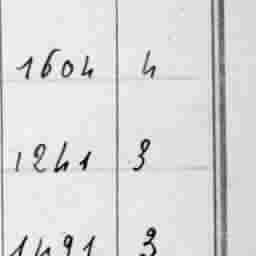 1604 4
1241 3
1491 3